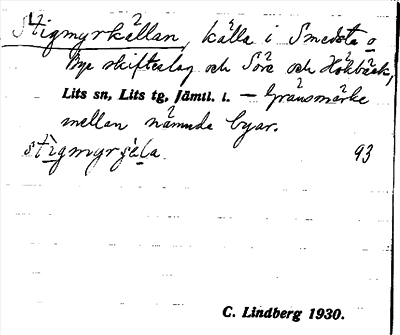 Stigmyrkällan, källa i Smedsta o
Bye skifteslag och Söre och Hökbäck,
Lits sn, Lits tg, Jämtl. l. — Gränsmärke
mellan nämnda byar.
stìgmyrɟäla. 93
C. Lindberg 1930.